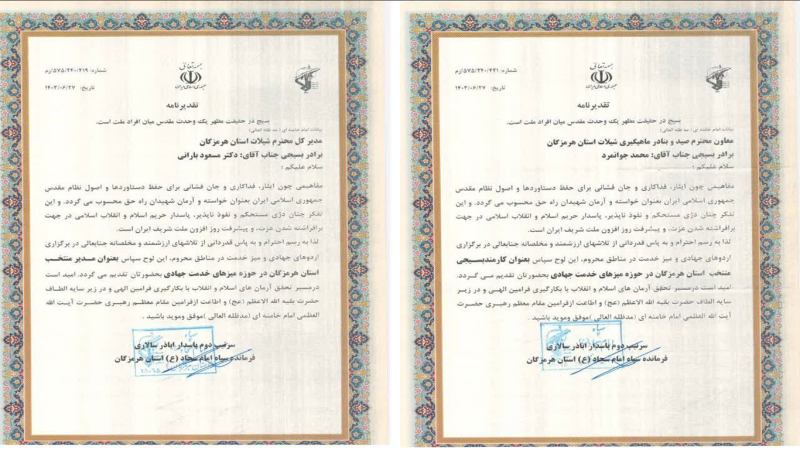 بسمه تعالی
جمهوری اسلامی ایران
شماره: ۵۷۵/۲۴۰/۴۱۹/ازم
تاریخ: ۱۴۰۳/۰۶/۲۷
تقدیرنامه
بسیج در حقیقت مظهر یک وحدت مقدس میان افراد ملت است.
بیانات امام خامنه ای ( مد ظله العالی)
مدیر کل محترم شیلات استان هرمزگان
برادر بسیجی جناب آقای: دکتر مسعود بارانی
سلام علیکم :
مفاهیمی چون ایثار، فداکاری و جان فشانی برای حفظ دستاوردها و اصول نظام مقدس
جمهوری اسلامی ایران بعنوان خواسته و آرمان شهیدان راه حق محسوب می گردد. و این
تفکر چنان دژی مستحکم و نفوذ ناپذیر، پاسدار حریم اسلام و انقلاب اسلامی در جهت
برافراشته شدن عزت، و پیشرفت روز افزون ملت شریف ایران است.
لذا به رسم احترام و به پاس قدردانی از تلاشهای ارزشمند و مخلصانه جنابعالی در برگزاری
اردوهای جهادی و میز خدمت در مناطق محروم، این لوح سپاس بعنوان مدیر منتخب
استان هرمزگان در حوزه میزهای خدمت جهادی بحضورتان تقدیم می گردد. امید است
درمسیر تحقق آرمان های اسلام و انقلاب با بکارگیری فرامین الهی و در زیر سایه الطاف
حضرت بقیه الله الاعظم (عج) و اطاعت ازفرامین مقام معظم رهبری حضرت آیت الله
العظمی امام خامنه ای (مدظله العالی) موفق وموید باشید .
سرتیپ دوم پاسدار اباذر سالاری
فرمانده سپاه امام سجاد (ع) استان هرمزگان
بسمه تعالی
جمهوری اسلامی ایران
شماره: ۵۷۵/۲۴۰/۴۲۱/ازم
تاریخ: ۱۴۰۳/۰۶/۲۷
تقدیرنامه
بسیج در حقیقت مظهر یک وحدت مقدس میان افراد ملت است.
بیانات امام خامنه ای ( مد ظله العالی)
معاون محترم صید و بنادر ماهیگیری شیلات استان هرمزگان
برادر بسیجی جناب آقای: محمد جوانمرد
سلام علیکم :
مفاهیمی چون ایثار، فداکاری و جان فشانی برای حفظ دستاوردها و اصول نظام مقدس
جمهوری اسلامی ایران بعنوان خواسته و آرمان شهیدان راه حق محسوب می گردد. و این
تفکر چنان دژی مستحکم و نفوذ ناپذیر، پاسدار حریم اسلام و انقلاب اسلامی در جهت
برافراشته شدن عزت، و پیشرفت روز افزون ملت شریف ایران است.
لذا به رسم احترام و به پاس قدردانی از تلاشهای ارزشمند و مخلصانه جنابعالی در برگزاری
اردوهای جهادی و میز خدمت در مناطق محروم، این لوح سپاس بعنوان کارمندبسیجی
منتخب استان هرمزگان در حوزه میزهای خدمت جهادی بحضورتان تقدیم می گردد.
امید است درمسیر تحقق آرمان های اسلام و انقلاب با بکارگیری فرامین الهی و در زیر
سایه الطاف حضرت بقیه الله الاعظم (عج) و اطاعت ازفرامین مقام معظم رهبری حضرت
آیت الله العظمی امام خامنه ای (مدظله العالی) موفق وموید باشید .
سرتیپ دوم پاسدار اباذر سالاری
فرمانده سپاه امام سجاد (ع) استان هرمزگان